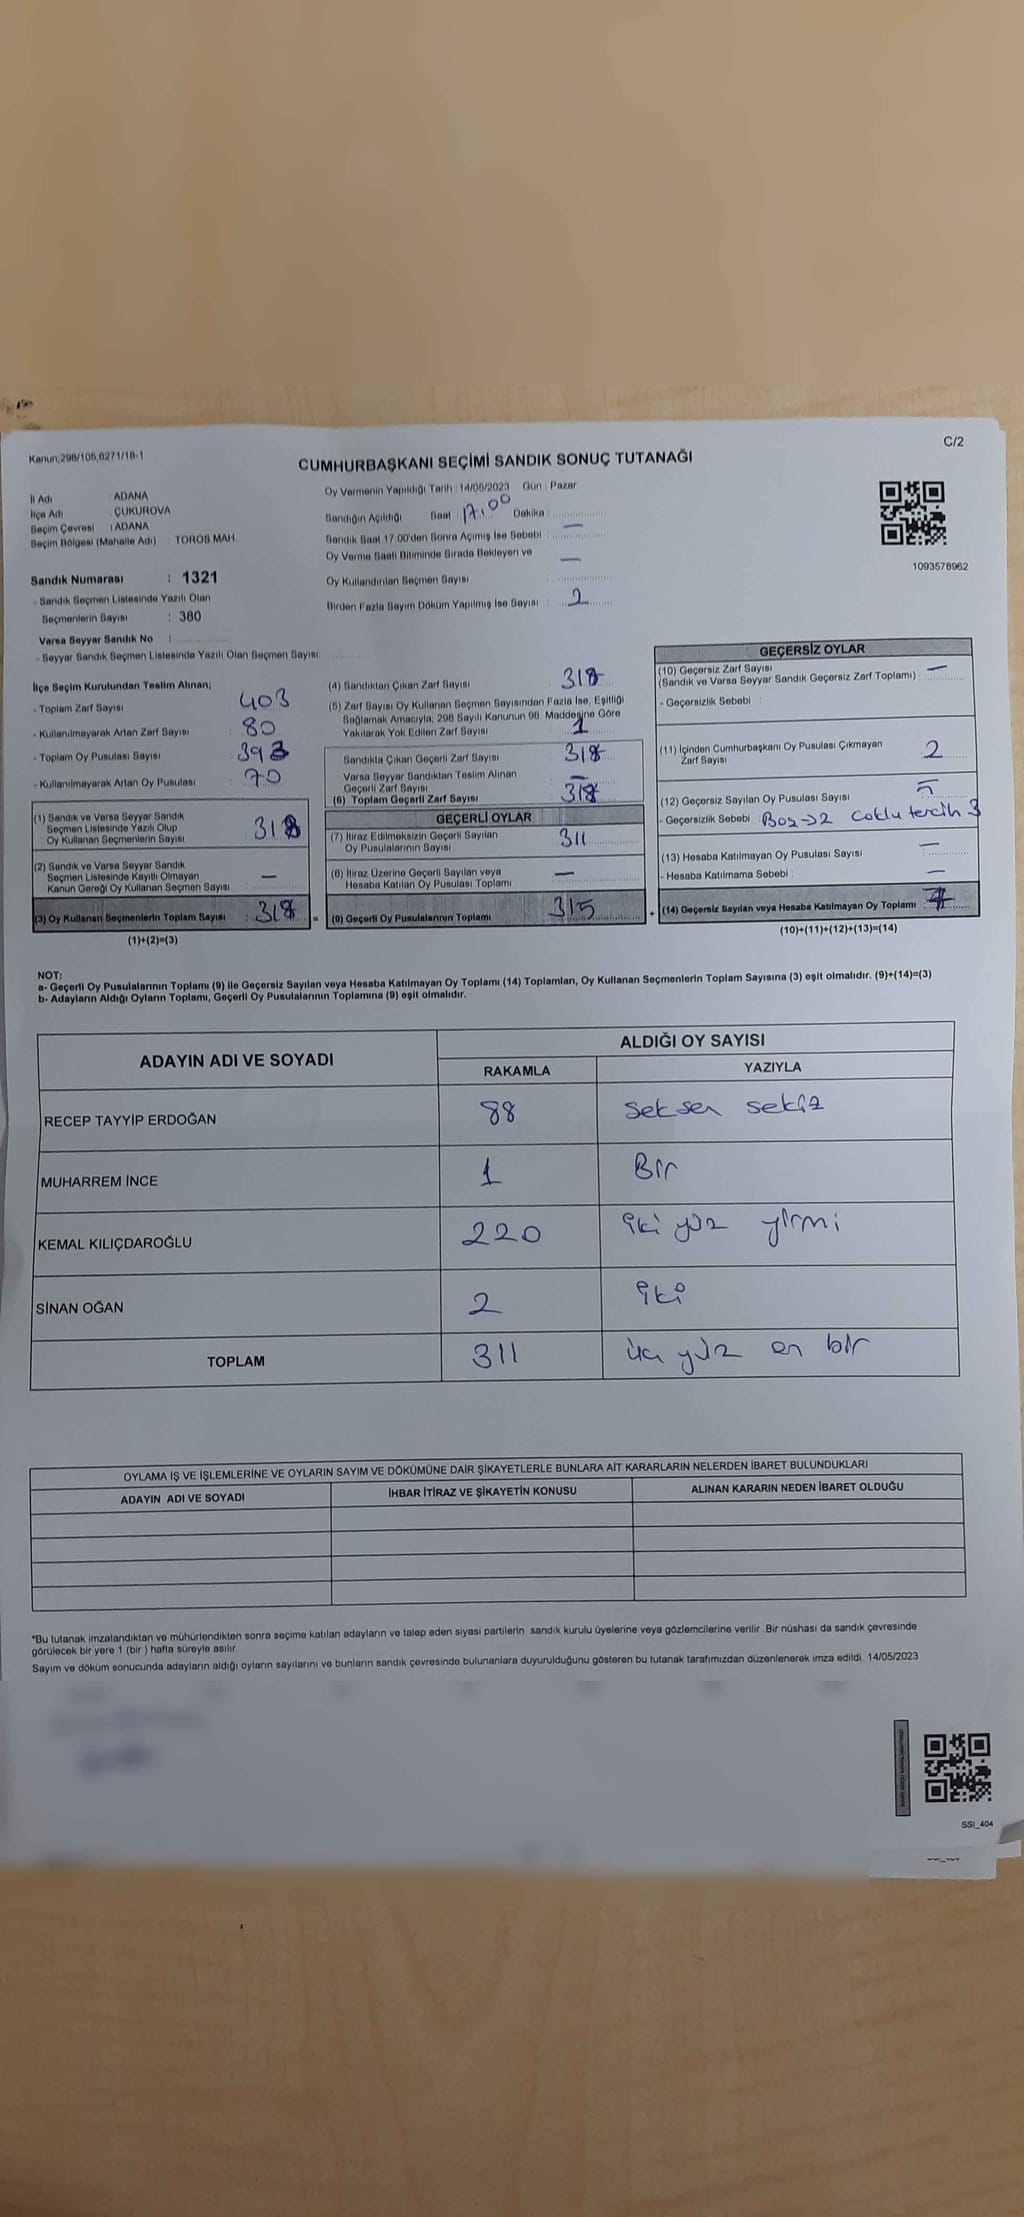 Kanun;298/105,6271/18-1
C/2
CUMHURBAŞKANI SEÇİMİ SANDIK SONUÇ TUTANAĞI
İl Adı : ADANA
İlçe Adı : ÇUKUROVA
Seçim Çevresi : ADANA
Seçim Bölgesi (Mahalle Adı) : TOROS MAH.
Oy Vermenin Yapıldığı Tarih : 14/05/2023 Gün : Pazar
Sandığın Açıldığı Saat : 17.00 Dakika :
Sandık Saat 17:00'den Sonra Açılmış İse Sebebi : —
Oy Verme Saati Bitiminde Sırada Bekleyen ve
Oy Kullandırılan Seçmen Sayısı : —
Birden Fazla Sayım Döküm Yapılmış İse Sayısı : 2
1093576962
Sandık Numarası : 1321
- Sandık Seçmen Listesinde Yazılı Olan
Seçmenlerin Sayısı : 380
Varsa Seyyar Sandık No :
- Seyyar Sandık Seçmen Listesinde Yazılı Olan Seçmen Sayısı:
İlçe Seçim Kurulundan Teslim Alınan;
- Toplam Zarf Sayısı : 403
- Kullanılmayarak Artan Zarf Sayısı : 80
- Toplam Oy Pusulası Sayısı : 393
- Kullanılmayarak Artan Oy Pusulası : 70
(1) Sandık ve Varsa Seyyar Sandık
Seçmen Listesinde Yazılı Olup
Oy Kullanan Seçmenlerin Sayısı : 318
(2) Sandık ve Varsa Seyyar Sandık
Seçmen Listesinde Kayıtlı Olmayan
Kanun Gereği Oy Kullanan Seçmen Sayısı : —
(3) Oy Kullanan Seçmenlerin Toplam Sayısı : 318
(1)+(2)=(3)
(4) Sandıktan Çıkan Zarf Sayısı : 318
(5) Zarf Sayısı Oy Kullanan Seçmen Sayısından Fazla İse, Eşitliği
Sağlamak Amacıyla; 298 Sayılı Kanunun 98. Maddesine Göre
Yakılarak Yok Edilen Zarf Sayısı : 1
Sandıkta Çıkan Geçerli Zarf Sayısı : 318
Varsa Seyyar Sandıktan Teslim Alınan
Geçerli Zarf Sayısı : —
(6) Toplam Geçerli Zarf Sayısı : 318
GEÇERLİ OYLAR
(7) İtiraz Edilmeksizin Geçerli Sayılan
Oy Pusulalarının Sayısı : 311
(8) İtiraz Üzerine Geçerli Sayılan veya
Hesaba Katılan Oy Pusulası Toplamı : —
= (9) Geçerli Oy Pusulalarının Toplamı : 315
GEÇERSİZ OYLAR
(10) Geçersiz Zarf Sayısı
(Sandık ve Varsa Seyyar Sandık Geçersiz Zarf Toplamı) : —
- Geçersizlik Sebebi :
(11) İçinden Cumhurbaşkanı Oy Pusulası Çıkmayan
Zarf Sayısı : 2
(12) Geçersiz Sayılan Oy Pusulası Sayısı : 5
- Geçersizlik Sebebi : Boş→2 Çoklu tercih 3
(13) Hesaba Katılmayan Oy Pusulası Sayısı : —
- Hesaba Katılmama Sebebi : —
+ (14) Geçersiz Sayılan veya Hesaba Katılmayan Oy Toplamı : 7
(10)+(11)+(12)+(13)=(14)
NOT:
a- Geçerli Oy Pusulalarının Toplamı (9) ile Geçersiz Sayılan veya Hesaba Katılmayan Oy Toplamı (14) Toplamları, Oy Kullanan Seçmenlerin Toplam Sayısına (3) eşit olmalıdır. (9)+(14)=(3)
b- Adayların Aldığı Oyların Toplamı, Geçerli Oy Pusulalarının Toplamına (9) eşit olmalıdır.
ADAYIN ADI VE SOYADI
ALDIĞI OY SAYISI
RAKAMLA YAZIYLA
RECEP TAYYİP ERDOĞAN 88 Seksen sekiz
MUHARREM İNCE 1 Bir
KEMAL KILIÇDAROĞLU 220 iki yüz yirmi
SİNAN OĞAN 2 iki
TOPLAM 311 üç yüz on bir
OYLAMA İŞ VE İŞLEMLERİNE VE OYLARIN SAYIM VE DÖKÜMÜNE DAİR ŞİKAYETLERLE BUNLARA AİT KARARLARIN NELERDEN İBARET BULUNDUKLARI
ADAYIN ADI VE SOYADI İHBAR İTİRAZ VE ŞİKAYETİN KONUSU ALINAN KARARIN NEDEN İBARET OLDUĞU
*Bu tutanak imzalandıktan ve mühürlendikten sonra seçime katılan adayların ve talep eden siyasi partilerin sandık kurulu üyelerine veya gözlemcilerine verilir. Bir nüshası da sandık çevresinde
görülecek bir yere 1 (bir) hafta süreyle asılır.
Sayım ve döküm sonucunda adayların aldığı oyların sayılarını ve bunların sandık çevresinde bulunanlara duyurulduğunu gösteren bu tutanak tarafımızdan düzenlenerek imza edildi. 14/05/2023
SSI_404